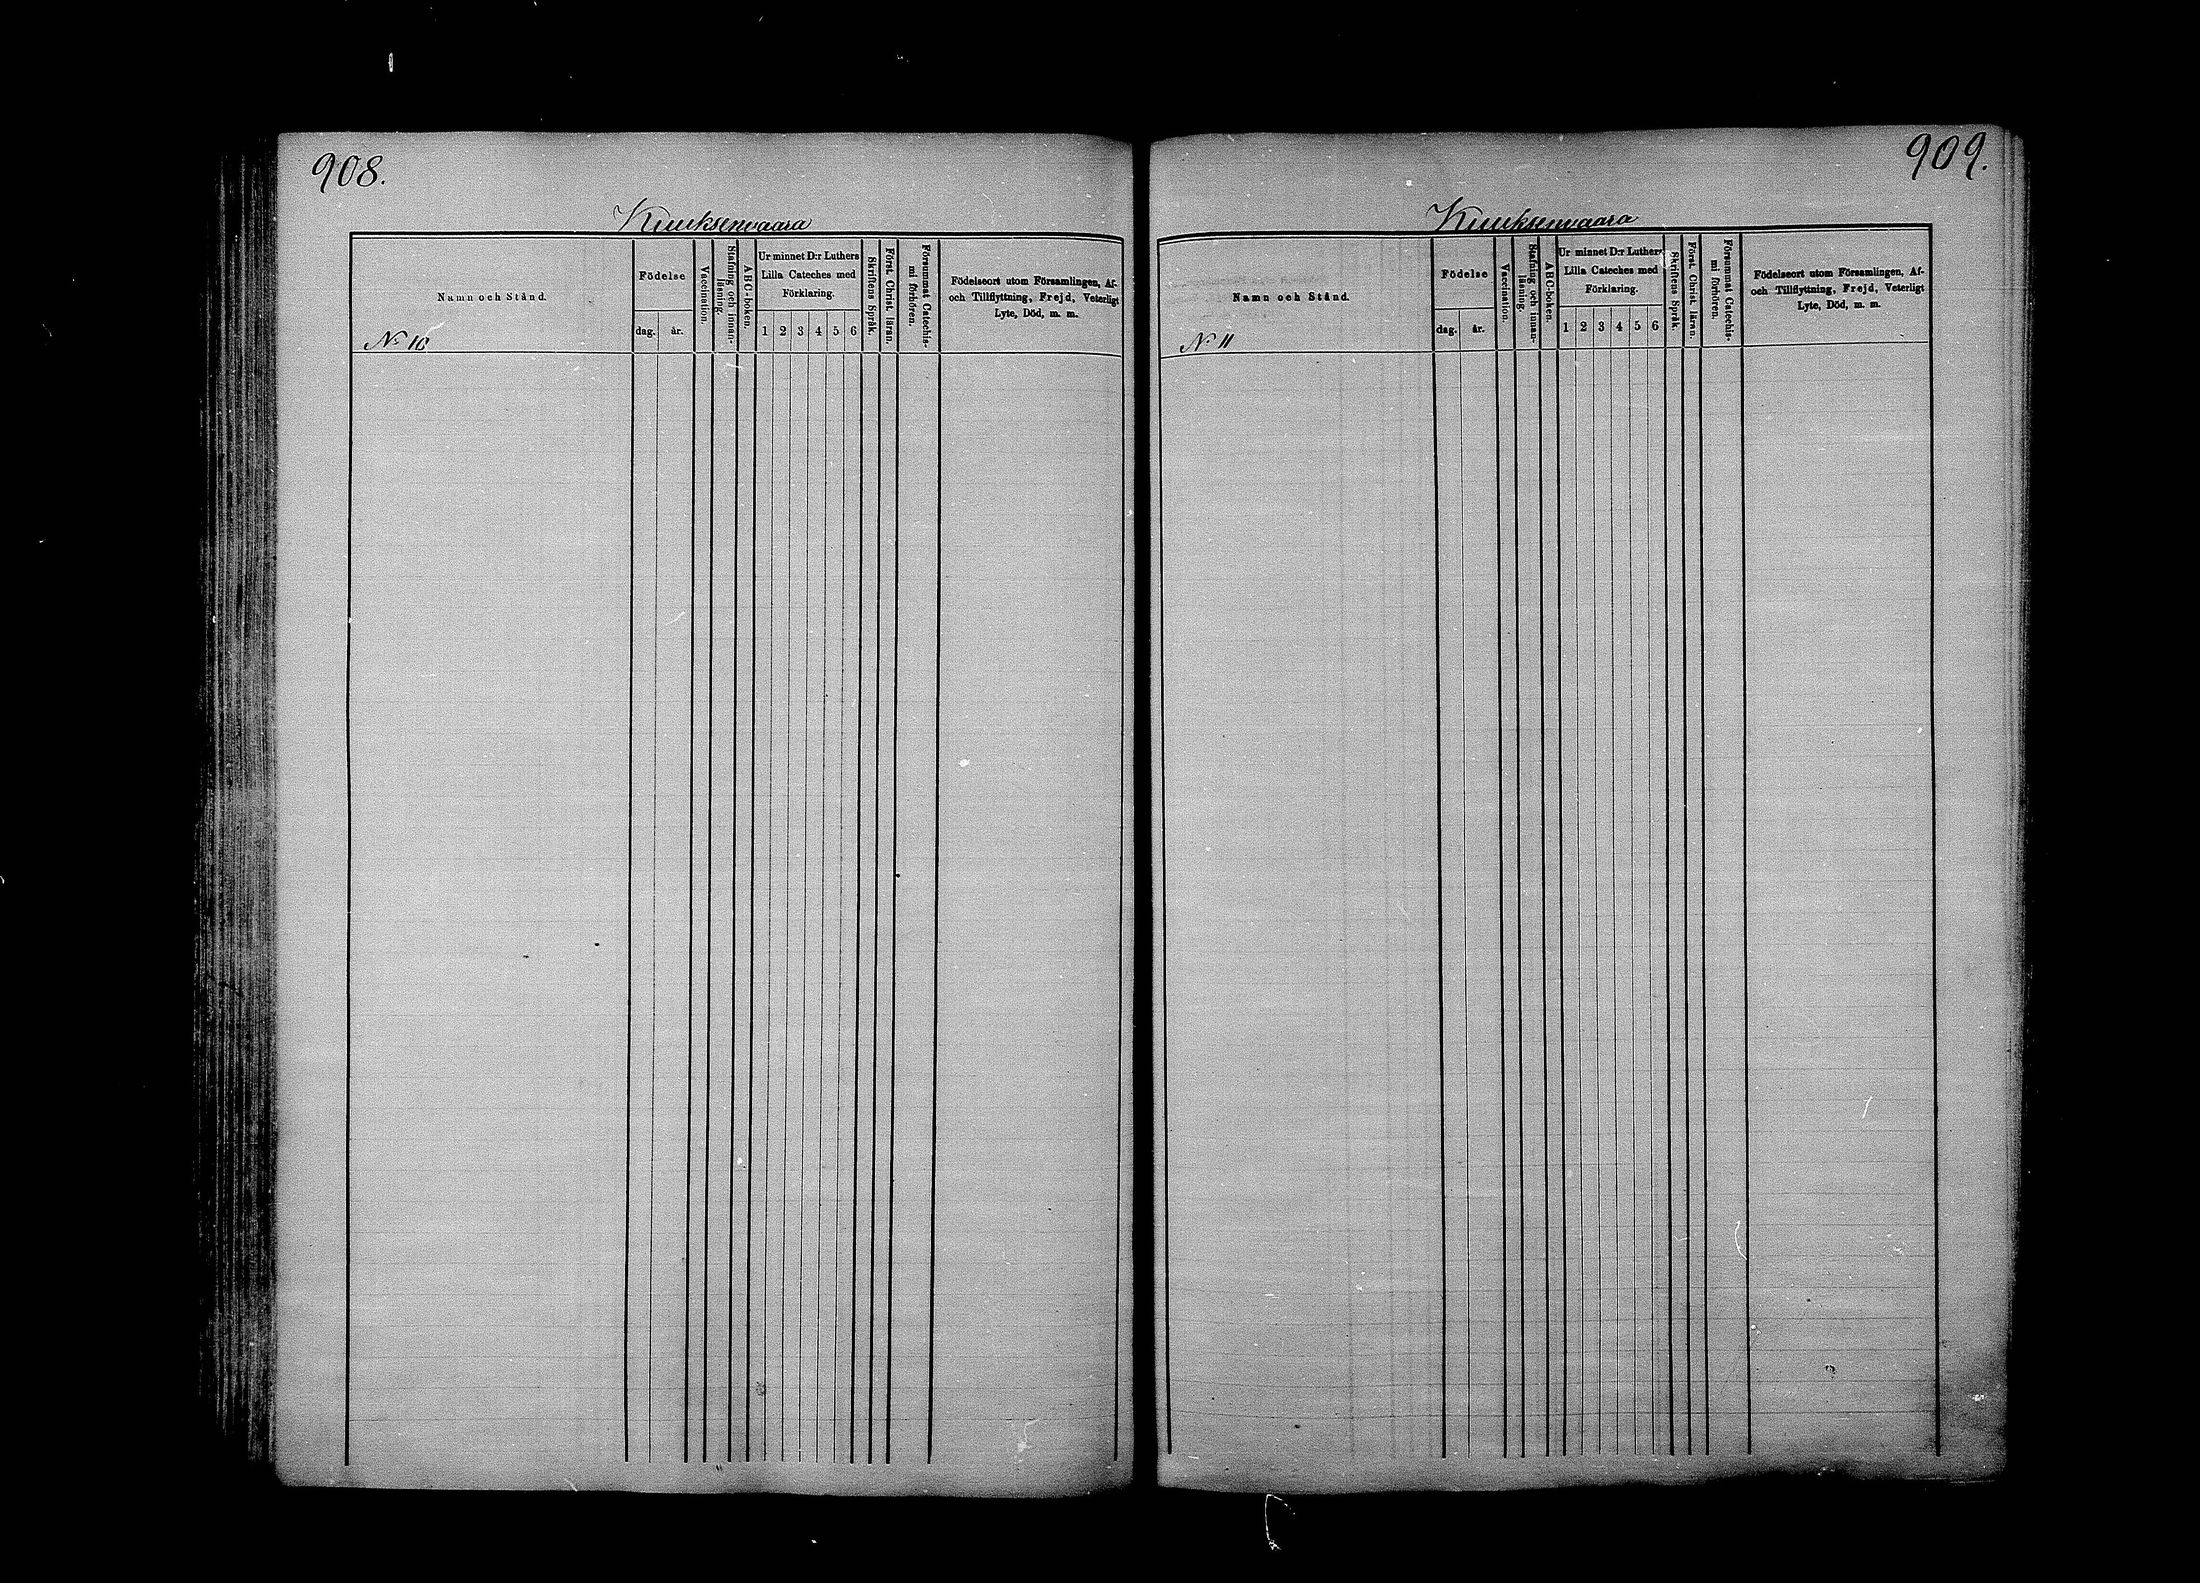 908.
Kuuksenvaara
Namn och Stånd.
Födelse
dag. år.
Vaccination.
Stafning och innan-
läsning.
ABC-boken.
Ur minnet D:r Luthers
Lilla Cateches med
Förklaring.
1 2 3 4 5 6
Skriftens Språk.
Först. Christ. läran.
Försummat Catechis-
mi förhören.
Födelseort utom Församlingen, Af-
och Tillflyttning, Frejd, Veterligt
Lyte, Död, m. m.
No 10
909.
Kuuksenvaara
Namn och Stånd.
Födelse
dag. år.
Vaccination.
Stafning och innan-
läsning.
ABC-boken.
Ur minnet D:r Luthers
Lilla Cateches med
Förklaring.
1 2 3 4 5 6
Skriftens Språk.
Först. Christ. läran.
Försummat Catechis-
mi förhören.
Födelseort utom Församlingen, Af-
och Tillflyttning, Frejd, Veterligt
Lyte, Död, m. m.
No 11